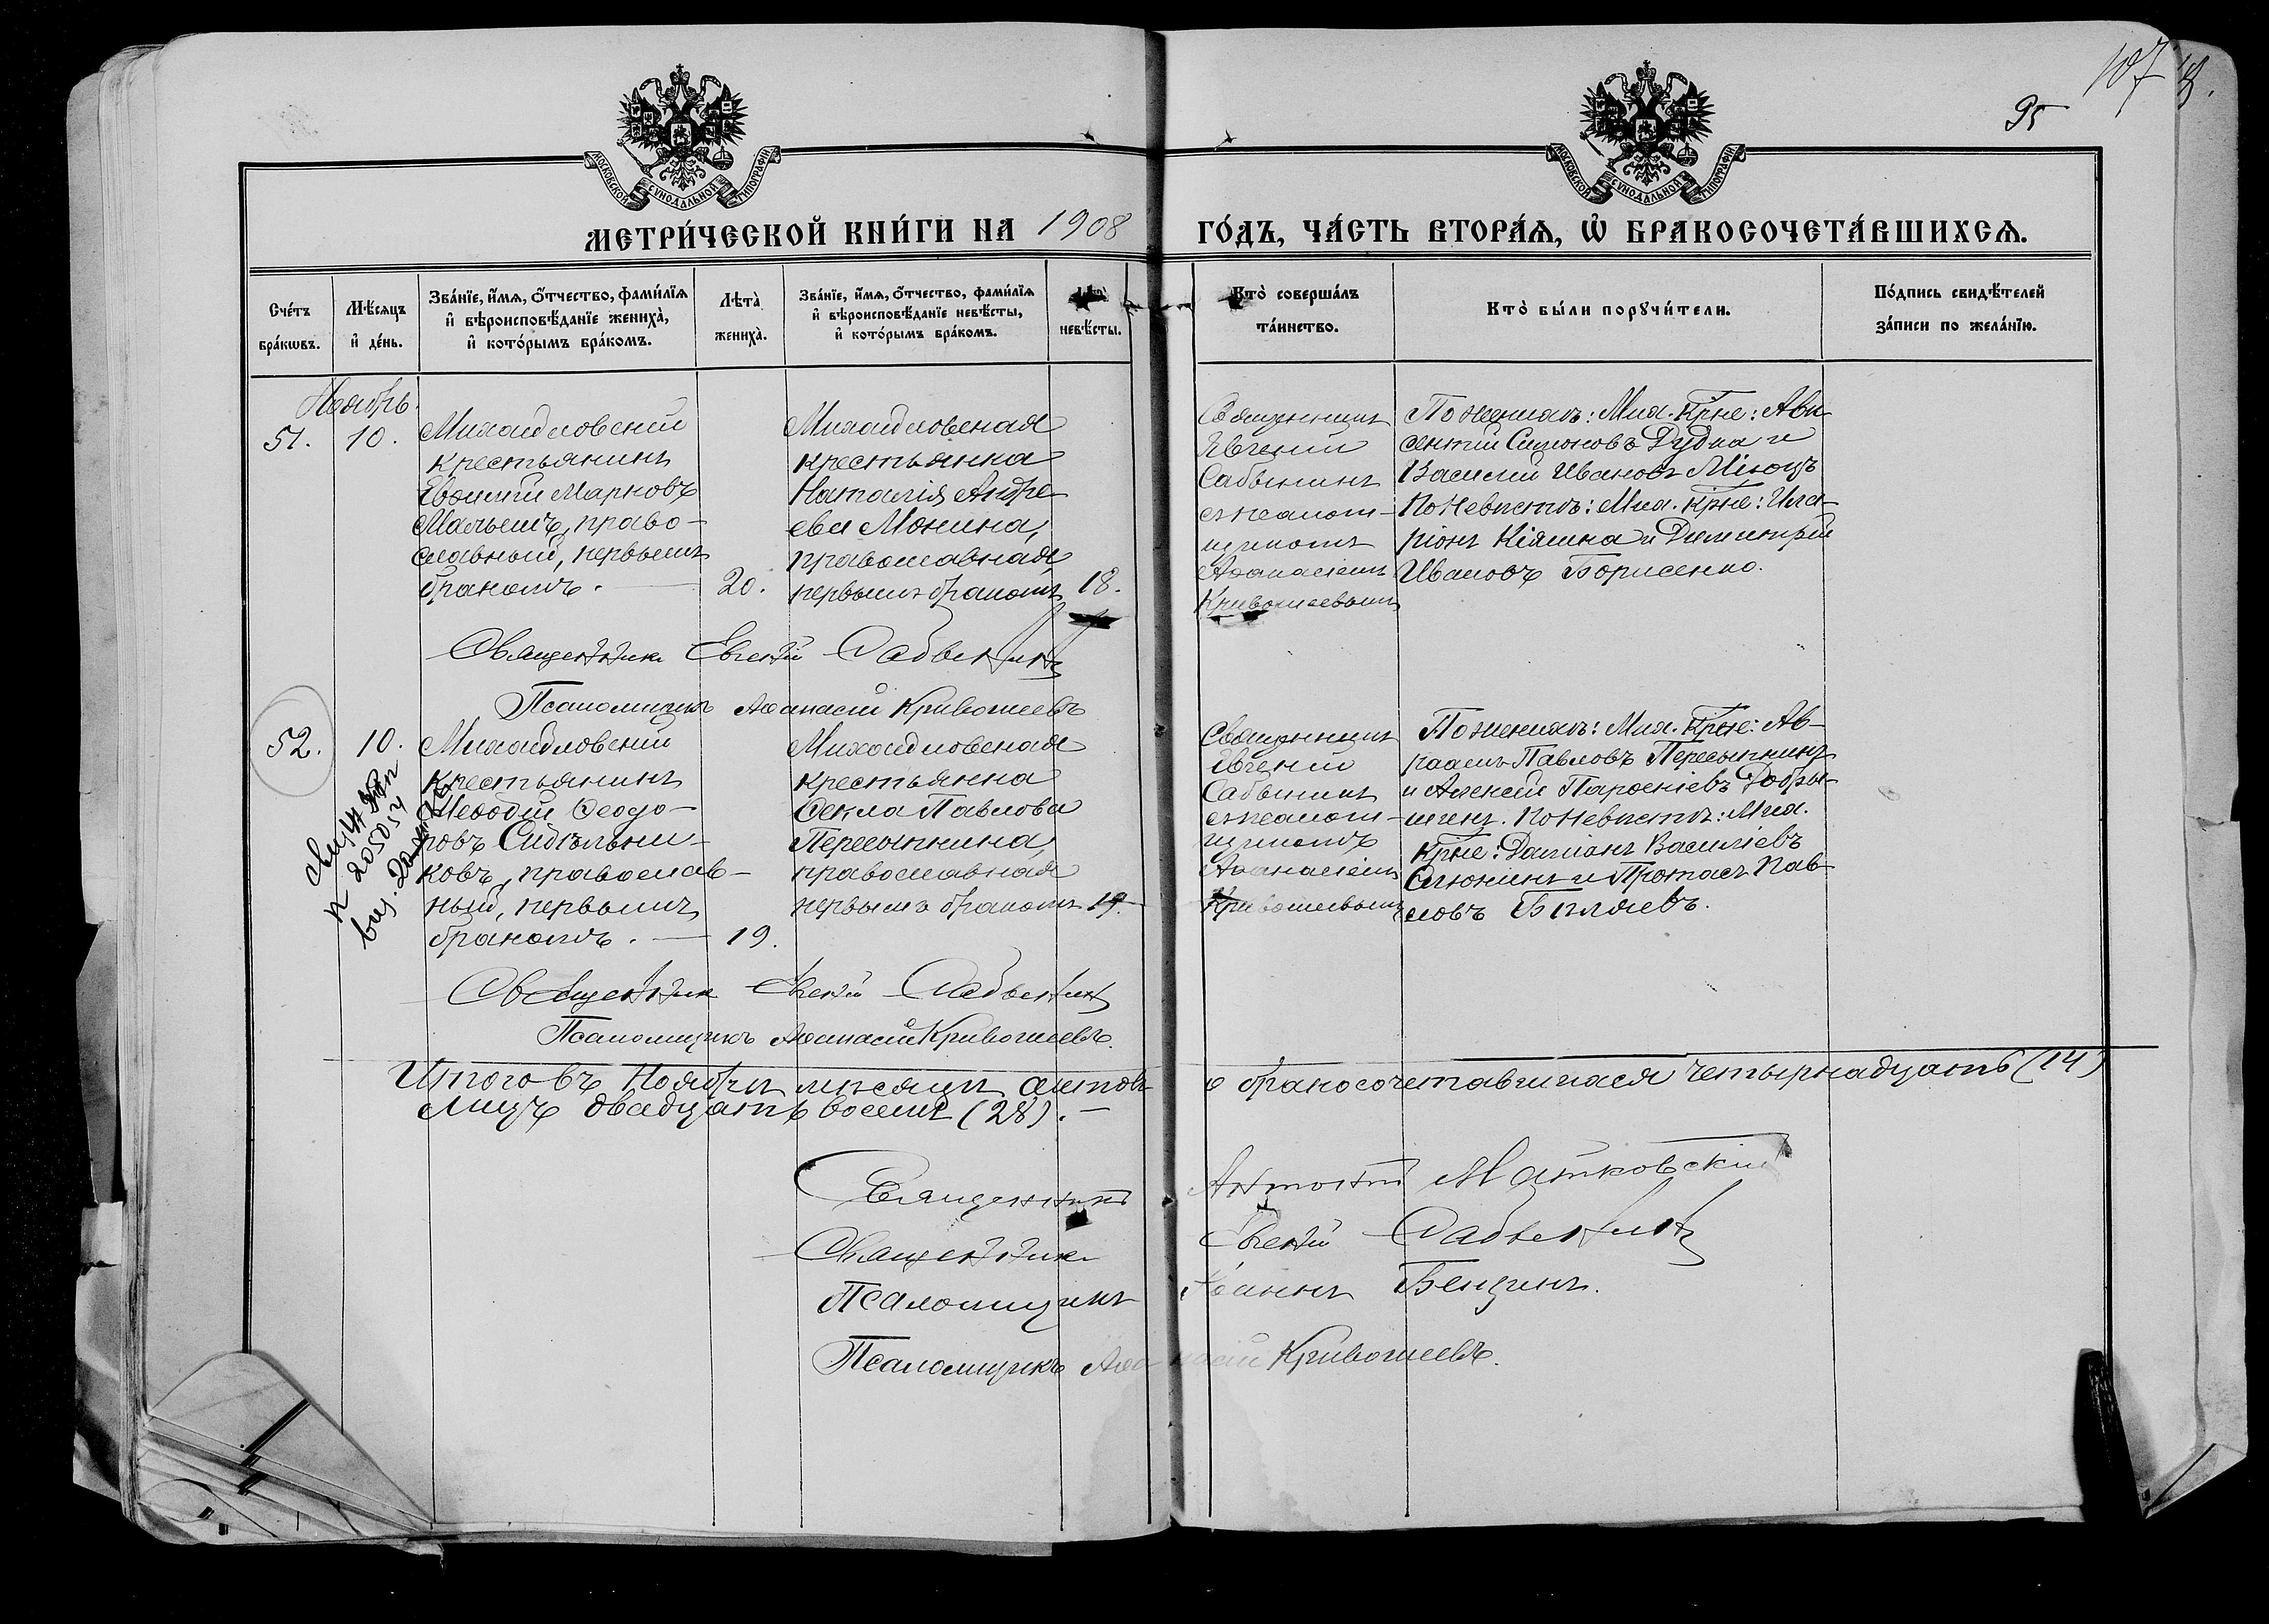 107
95
МОСКОВСКОЙ СѴНОДАЛЬНОЙ ТИПОГРАФІИ
МОСКОВСКОЙ СѴНОДАЛЬНОЙ ТИПОГРАФІИ
МЕТРИ́ЧЕСКОЙ КНИ́ГИ НА 1908
ГО́ДЪ, ЧА́СТЬ ВТОРА́Ѧ, Ѽ БРАКОСОЧЕТА́ВШИХСѦ.
Сче́тъ
бра́кѡвъ.
Мѣ́сѧцъ
и҆ де́нь.
Зва́нїе, и҆́мѧ, ѻ҆́тчество, фами́лїѧ
и҆ вѣроисповѣ́данїе жениха̀,
и҆ кото́рымъ бра́комъ.
Лѣта̀
жениха̀.
Зва́нїе, и҆́мѧ, ѻ҆́тчество, фами́лїѧ
и҆ вѣроисповѣ́данїе невѣ́сты,
и҆ кото́рымъ бра́комъ.
невѣ́сты.
Кто̀ соверша́лъ
та́инство.
Кто̀ бы́ли порꙋчи́тели.
По́дпись свидѣ́телей
за́писи по жела́нїю.
Ноябрь.
51. 10.
Михайловскій
крестьянинъ
Евѳимій Марковъ
Малышъ, право-
славный, первымъ
бракомъ. — 20.
Михайловская
крестьянка
Наталія Андре-
ева Монина,
православная,
первымъ бракомъ 18.
Священникъ
Евгеній
Сабынинъ
съ псалом-
щикомъ
Аѳанасіемъ
Кривошеевымъ
По женихѣ: Мих. Крне: Ави
сентій Симоновъ Дудка и
Василій Ивановъ Міюцъ
По невѣстѣ: Мих. Крне: Ила-
ріонъ Кіяшка и Димитрій
Ивановъ Борисенко.
Священникъ Евгеній Сабынинъ
Псаломщикъ Аѳанасій Кривошеевъ
52. 10.
Михайловскій
крестьянинъ
Меѳодій Ѳеодо-
ровъ Сидѣльни-
ковъ, православ-
ный, первымъ
бракомъ. — 19.
Михайловская
крестьянка
Ѳекла Павлова
Пересыпкина,
православная
первымъ бракомъ 19.
Священникъ
Евгеній
Сабынинъ
съ псалом-
щикомъ
Аѳанасіемъ
Кривошеевымъ
По женихѣ: Мих. Крне: Ав-
раамъ Павловъ Пересыпкинъ
и Алексій Парѳеніевъ Добры-
шинъ. По невѣстѣ: Мих.
Крне: Даміанъ Василіевъ
Алюнинъ и Протасъ Пав-
ловъ Бѣляевъ.
N 205054
Священникъ Евгеній Сабынинъ
Псаломщикъ Аѳанасій Кривошеевъ.
Итого въ Ноябрѣ мѣсяцѣ актовъ о бракосочетавшихся четырнадцать (14)
лицъ двадцать восемь (28). —
Священникъ Антоній Матковскій
Священникъ Евгеній Сабынинъ
Псаломщикъ Іоаннъ Бенцинъ.
Псаломщикъ Аѳанасій Кривошеевъ.